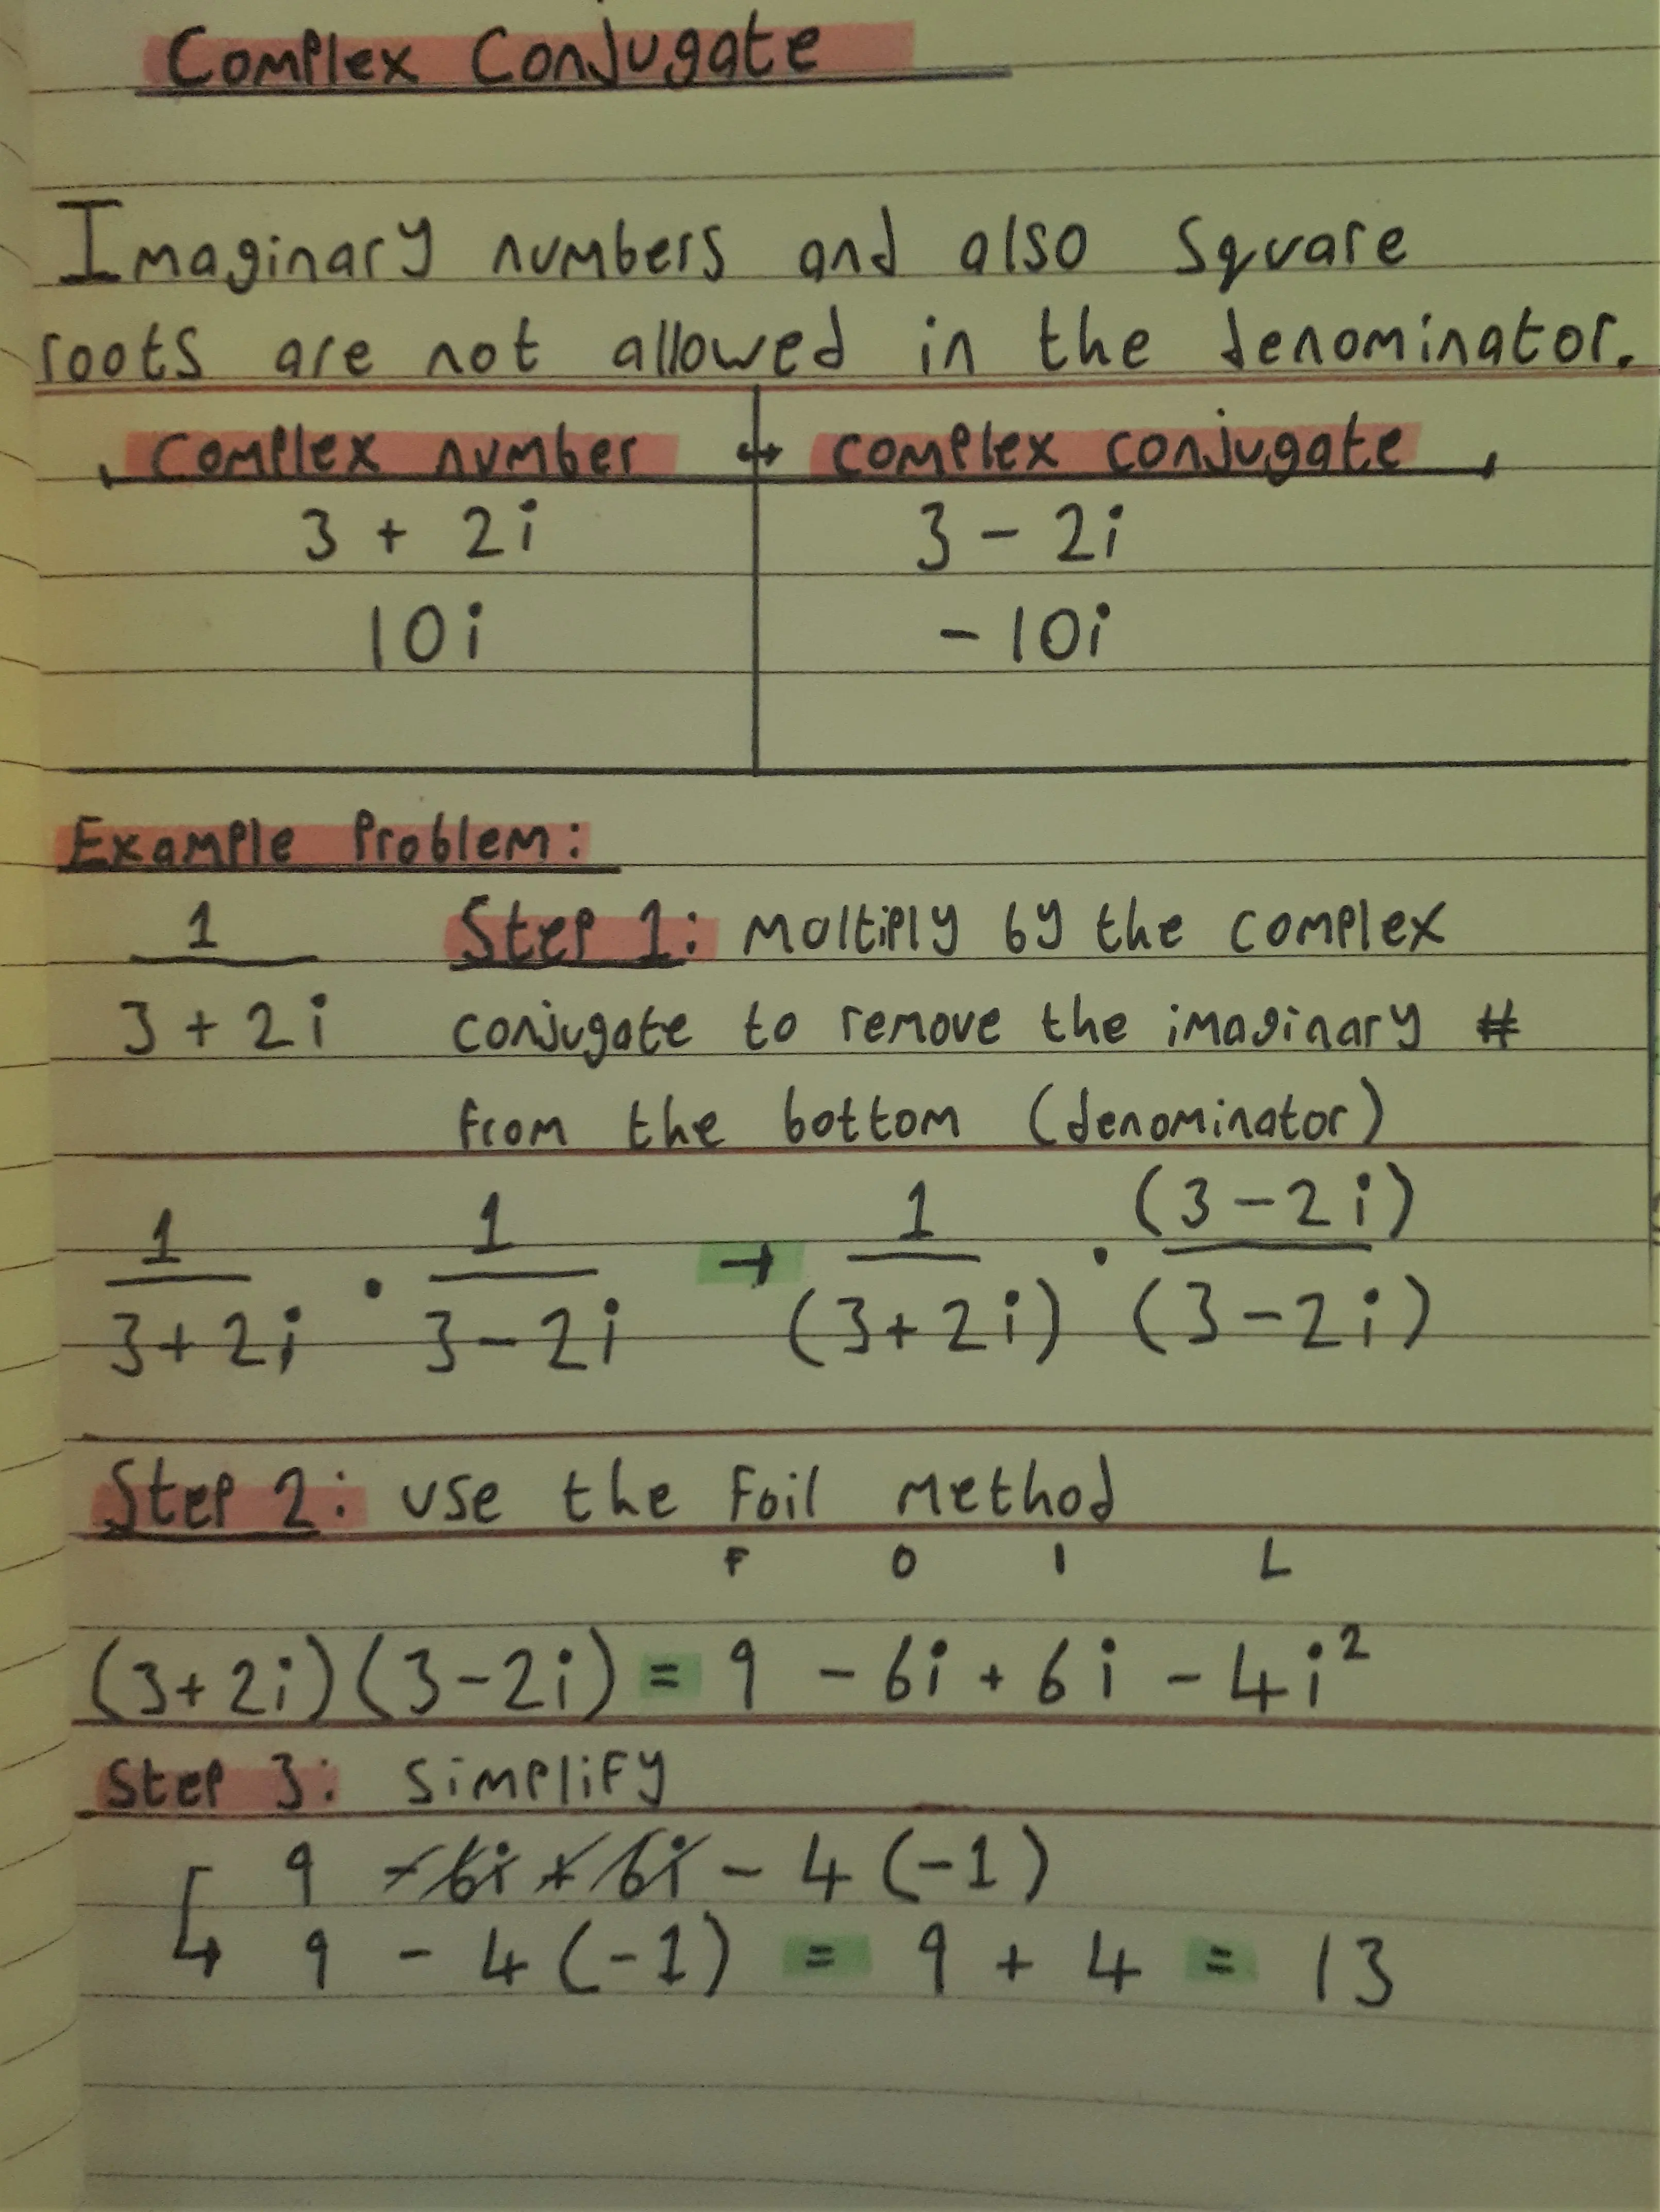 Complex Conjugate
Imaginary numbers and also square
roots are not allowed in the denominator.
complex number ↔ complex conjugate
3 + 2i 3 - 2i
10i - 10i
Example Problem:
1/(3 + 2i) Step 1: Multiply by the complex
conjugate to remove the imaginary #
from the bottom (denominator)
1/(3+2i) · 1/(3-2i) → 1/(3+2i) · (3-2i)/(3-2i)
Step 2: use the Foil Method
F O I L
(3+2i)(3-2i) = 9 - 6i + 6i - 4i²
Step 3: Simplify
9 - 6i + 6i - 4(-1)
↳ 9 - 4(-1) = 9 + 4 = 13